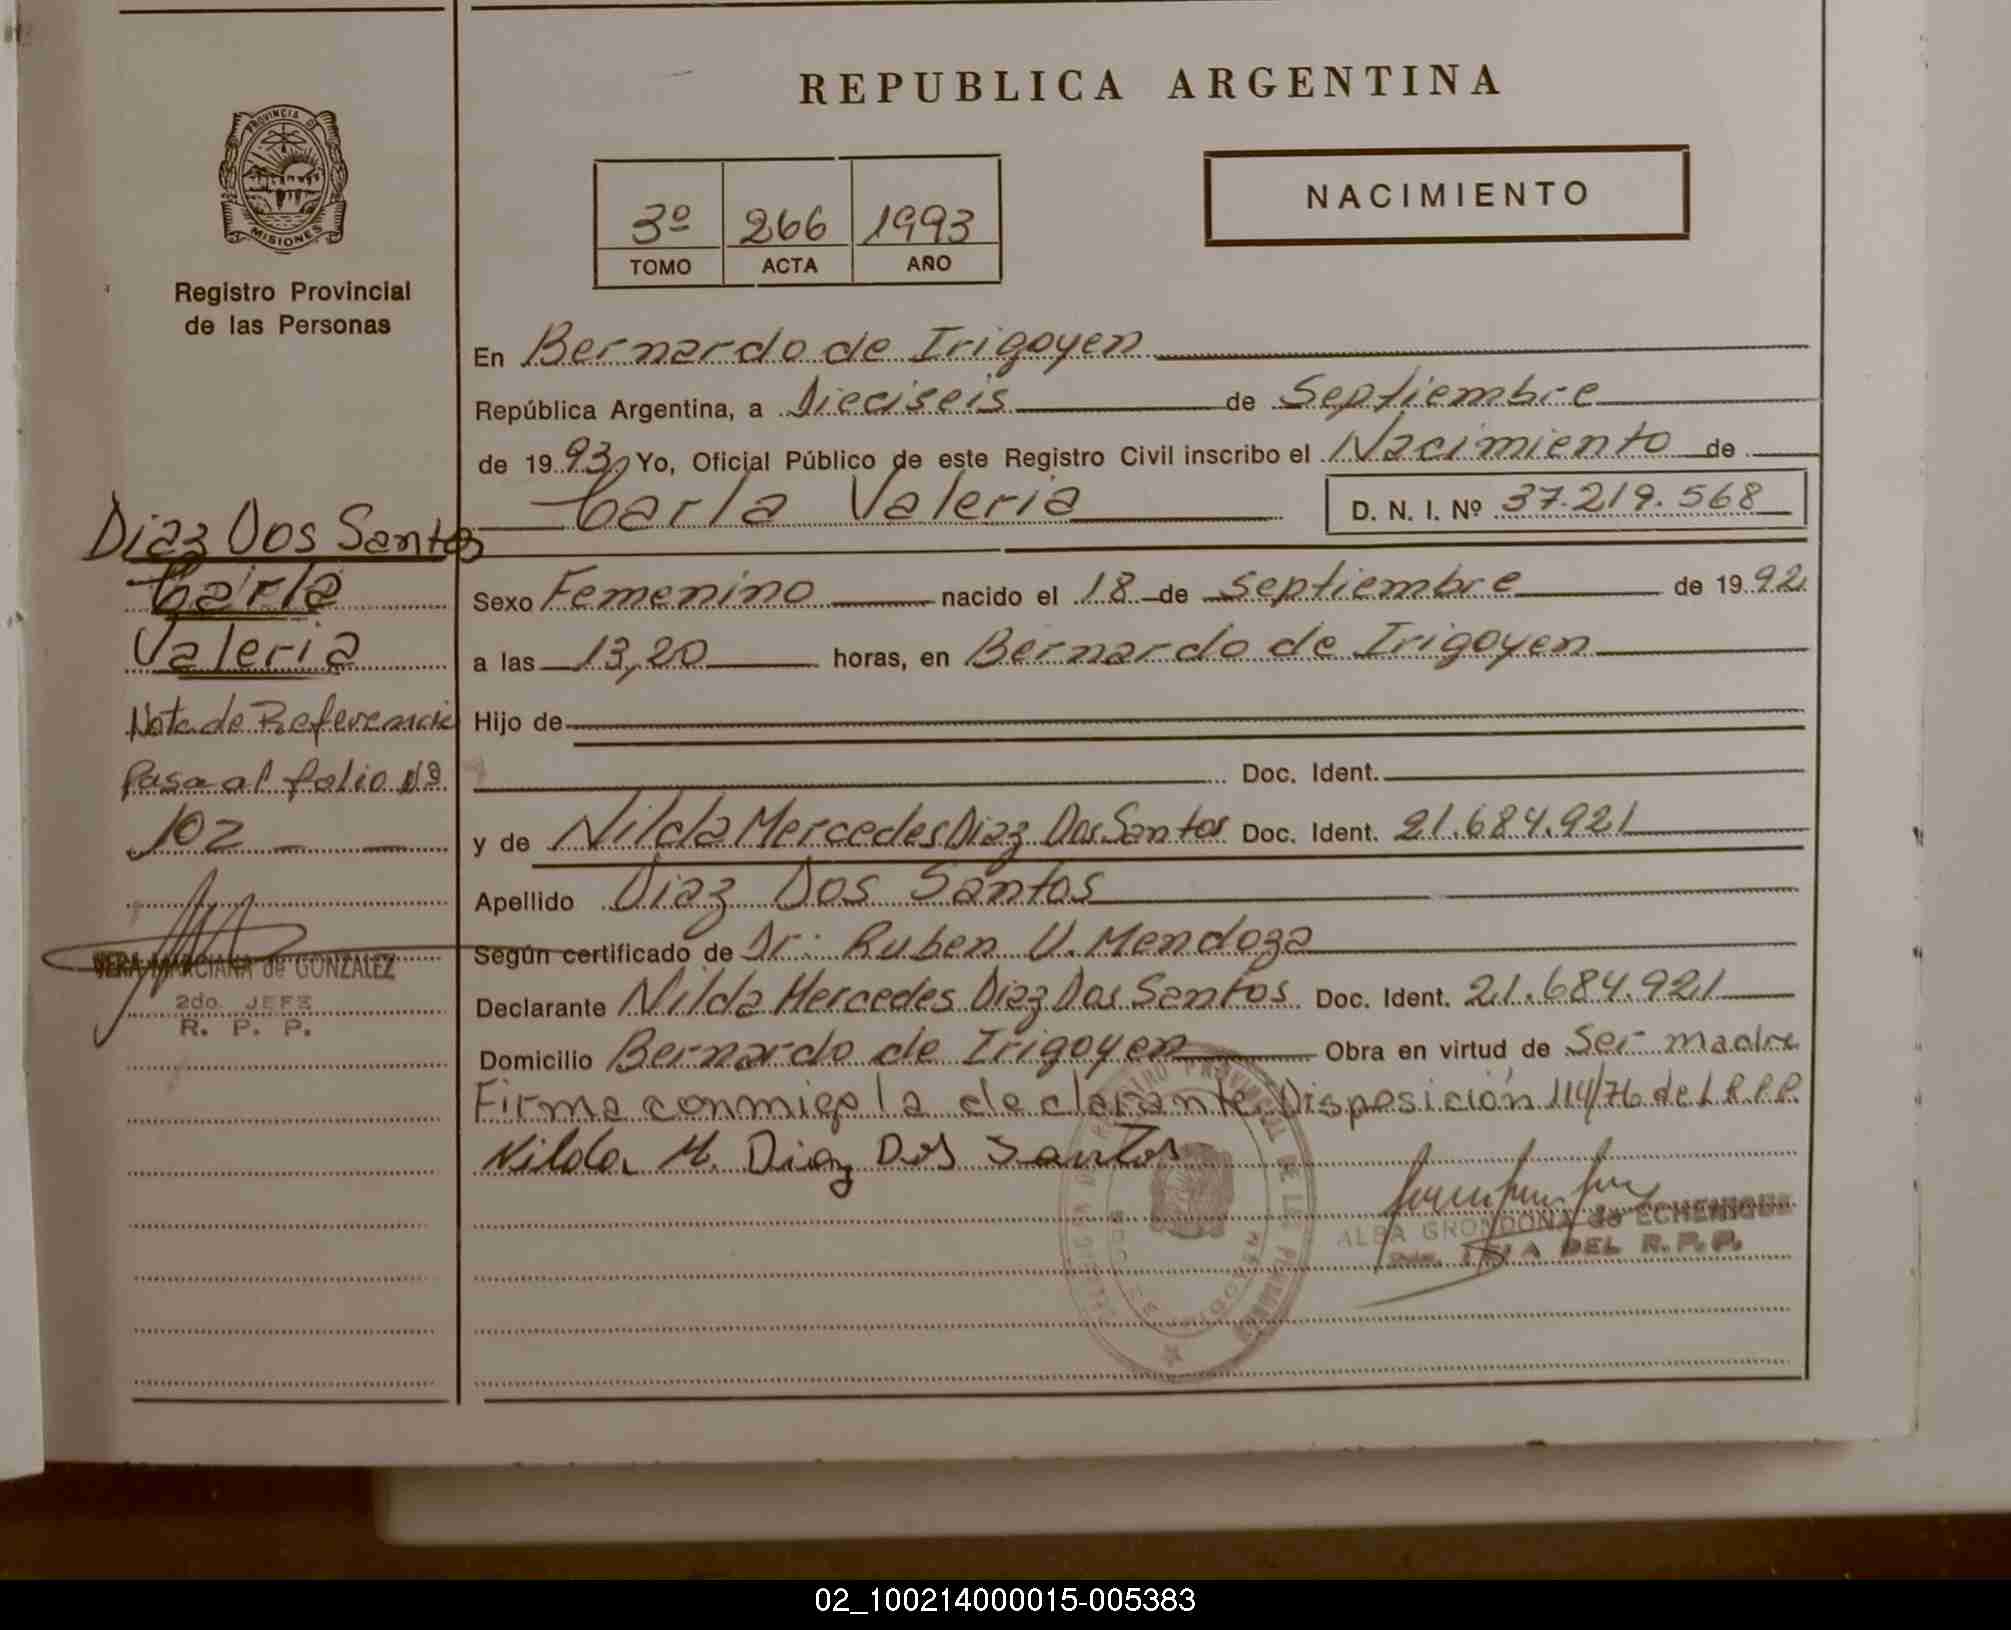 REPUBLICA ARGENTINA
PROVINCIA DE
MISIONES
Registro Provincial
de las Personas
3º 266 1993
TOMO ACTA AÑO
NACIMIENTO
En Bernardo de Irigoyen
República Argentina, a Dieciseis de Septiembre
de 1993 Yo, Oficial Público de este Registro Civil inscribo el Nacimiento de
Carla Valeria D. N. I. Nº 37.219.568
Sexo Femenino nacido el 18 de septiembre de 1992
a las 13,20 horas, en Bernardo de Irigoyen
Hijo de
Doc. Ident.
y de Nilda Mercedes Diaz Dos Santos Doc. Ident. 21.684.921
Apellido Diaz Dos Santos
Según certificado de Dr. Ruben U. Mendoza
Declarante Nilda Mercedes Diaz Dos Santos Doc. Ident. 21.684.921
Domicilio Bernardo de Irigoyen Obra en virtud de Ser madre
Firma conmigo la declarante. Disposición 114/76 del R.P.P.
Nilda M. Diaz Dos Santos
ALBA GRONDONA de ECHENIQUE
DEL R. P. P.
Diaz Dos Santos
Carla
Valeria
Nota de Referencia
Pasa al folio Nº
102
VERA MARCIANA de GONZALEZ
2do. JEFE
R. P. P.
02_100214000015-005383